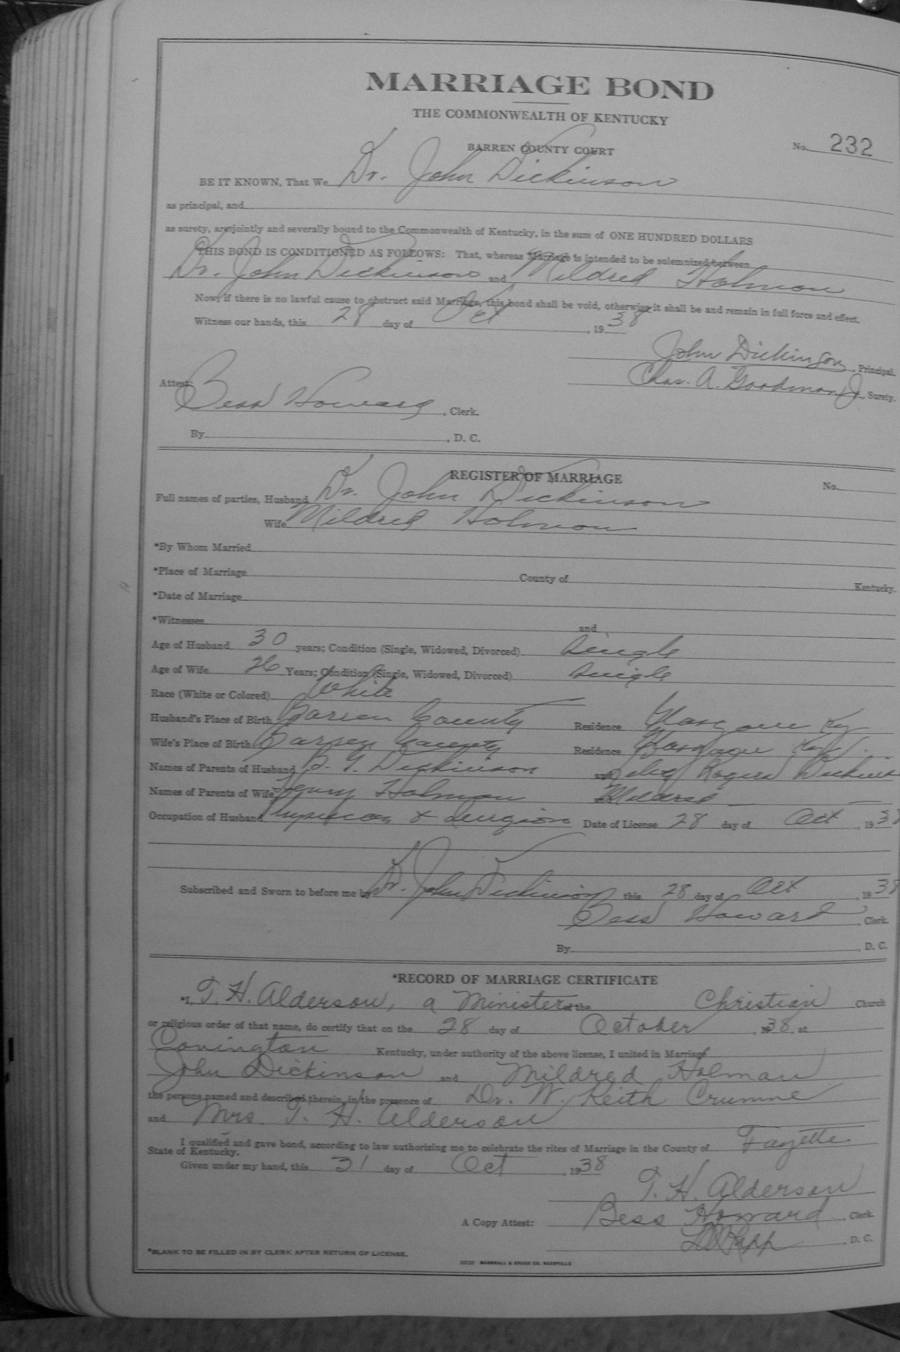 MARRIAGE BOND
THE COMMONWEALTH OF KENTUCKY
BARREN COUNTY COURT
No. 232
BE IT KNOWN, That We Dr. John Dickinson
as principal, and
as surety, are jointly and severally bound to the Commonwealth of Kentucky, in the sum of ONE HUNDRED DOLLARS
THIS BOND IS CONDITIONED AS FOLLOWS: That, whereas Marriage is intended to be solemnized between
Dr. John Dickinson and Mildred Holman
Now, if there is no lawful cause to obstruct said Marriage, this bond shall be void, otherwise it shall be and remain in full force and effect.
Witness our hands, this 28 day of Oct, 1938
John Dickinson, Principal.
Chas. A. Goodman Jr. Surety.
Attest: Bess Howard, Clerk.
By , D. C.
REGISTER OF MARRIAGE
No.
Full names of parties, Husband Dr. John Dickinson
Wife Mildred Holman
*By Whom Married
*Place of Marriage County of Kentucky.
*Date of Marriage
*Witnesses and
Age of Husband 30 years; Condition (Single, Widowed, Divorced) Single
Age of Wife 26 Years; Condition (Single, Widowed, Divorced) Single
Race (White or Colored) White
Husband's Place of Birth Barren County Residence Glasgow Ky
Wife's Place of Birth Barren County Residence Glasgow Ky.
Names of Parents of Husband Dickinson and Rogers Dickins
Names of Parents of Wife Henry Holman Mildred
Occupation of Husband Physician & Surgeon Date of License 28 day of Oct, 193
Subscribed and Sworn to before me by Dr. John Dickinson this 28 day of Oct, 1938
Bess Howard, Clerk.
By , D. C.
*RECORD OF MARRIAGE CERTIFICATE
"I, T. H. Alderson, a Minister of the Christian Church
or religious order of that name, do certify that on the 28 day of October, 1938, at
Covington Kentucky, under authority of the above license, I united in Marriage
John Dickinson and Mildred Holman
the persons named and described therein, in the presence of Dr. W. Keith Crumne
and Mrs T. H. Alderson
I qualified and gave bond, according to law authorizing me to celebrate the rites of Marriage in the County of Fayette
State of Kentucky.
Given under my hand, this 31 day of Oct, 1938
T. H. Alderson
A Copy Attest: Bess Howard, Clerk.
, D. C.
*BLANK TO BE FILLED IN BY CLERK AFTER RETURN OF LICENSE.
MARSHALL & BRUCE CO. NASHVILLE